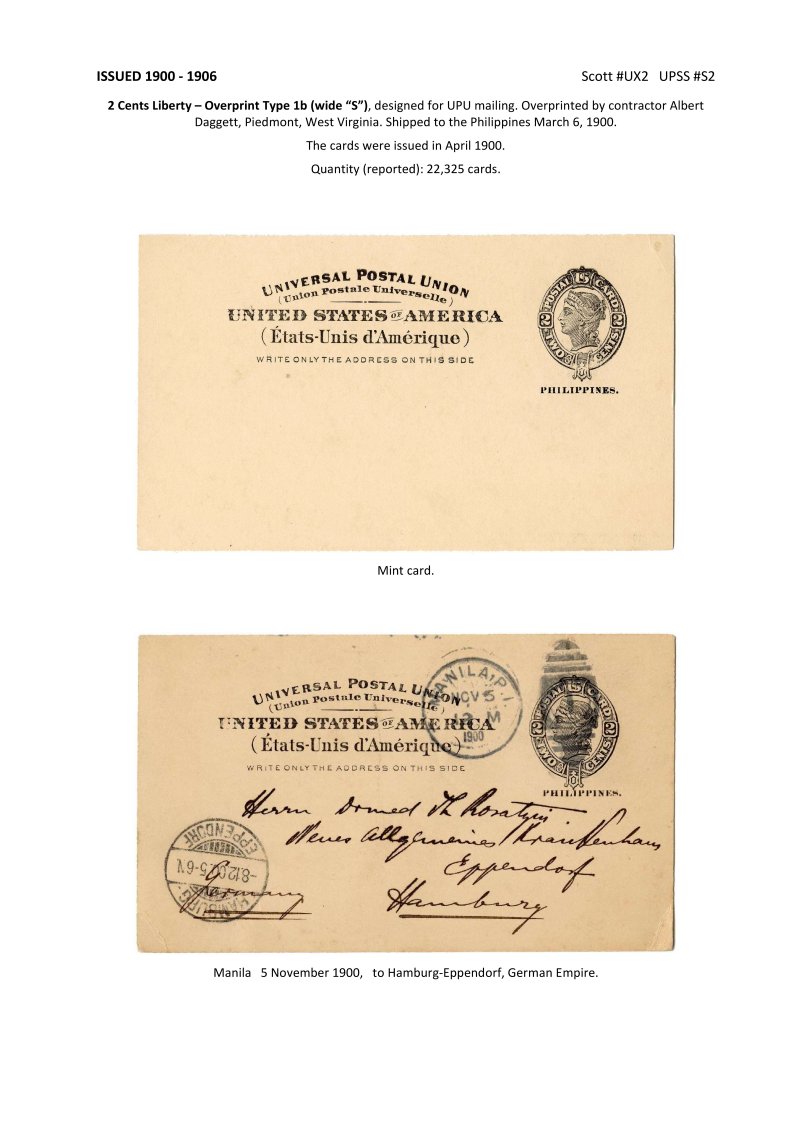 ISSUED 1900 - 1906 Scott #UX2 UPSS #S2
2 Cents Liberty – Overprint Type 1b (wide “S”), designed for UPU mailing. Overprinted by contractor Albert
Daggett, Piedmont, West Virginia. Shipped to the Philippines March 6, 1900.
The cards were issued in April 1900.
Quantity (reported): 22,325 cards.
UNIVERSAL POSTAL UNION
(Union Postale Universelle)
UNITED STATES OF AMERICA
(États-Unis d'Amérique)
WRITE ONLY THE ADDRESS ON THIS SIDE
POSTAL CARD
2 2
TWO CENTS
PHILIPPINES.
Mint card.
UNIVERSAL POSTAL UNION
(Union Postale Universelle)
UNITED STATES OF AMERICA
(États-Unis d'Amérique)
WRITE ONLY THE ADDRESS ON THIS SIDE
MANILA, P.I.
NOV 5
M
1900
POSTAL CARD
2 2
TWO CENTS
PHILIPPINES.
Herrn Dr med Th
Neues Allgemeines Krankenhaus
Eppendorf
Hamburg
Germany
EPPENDORF
HAMBURG
Manila 5 November 1900, to Hamburg-Eppendorf, German Empire.